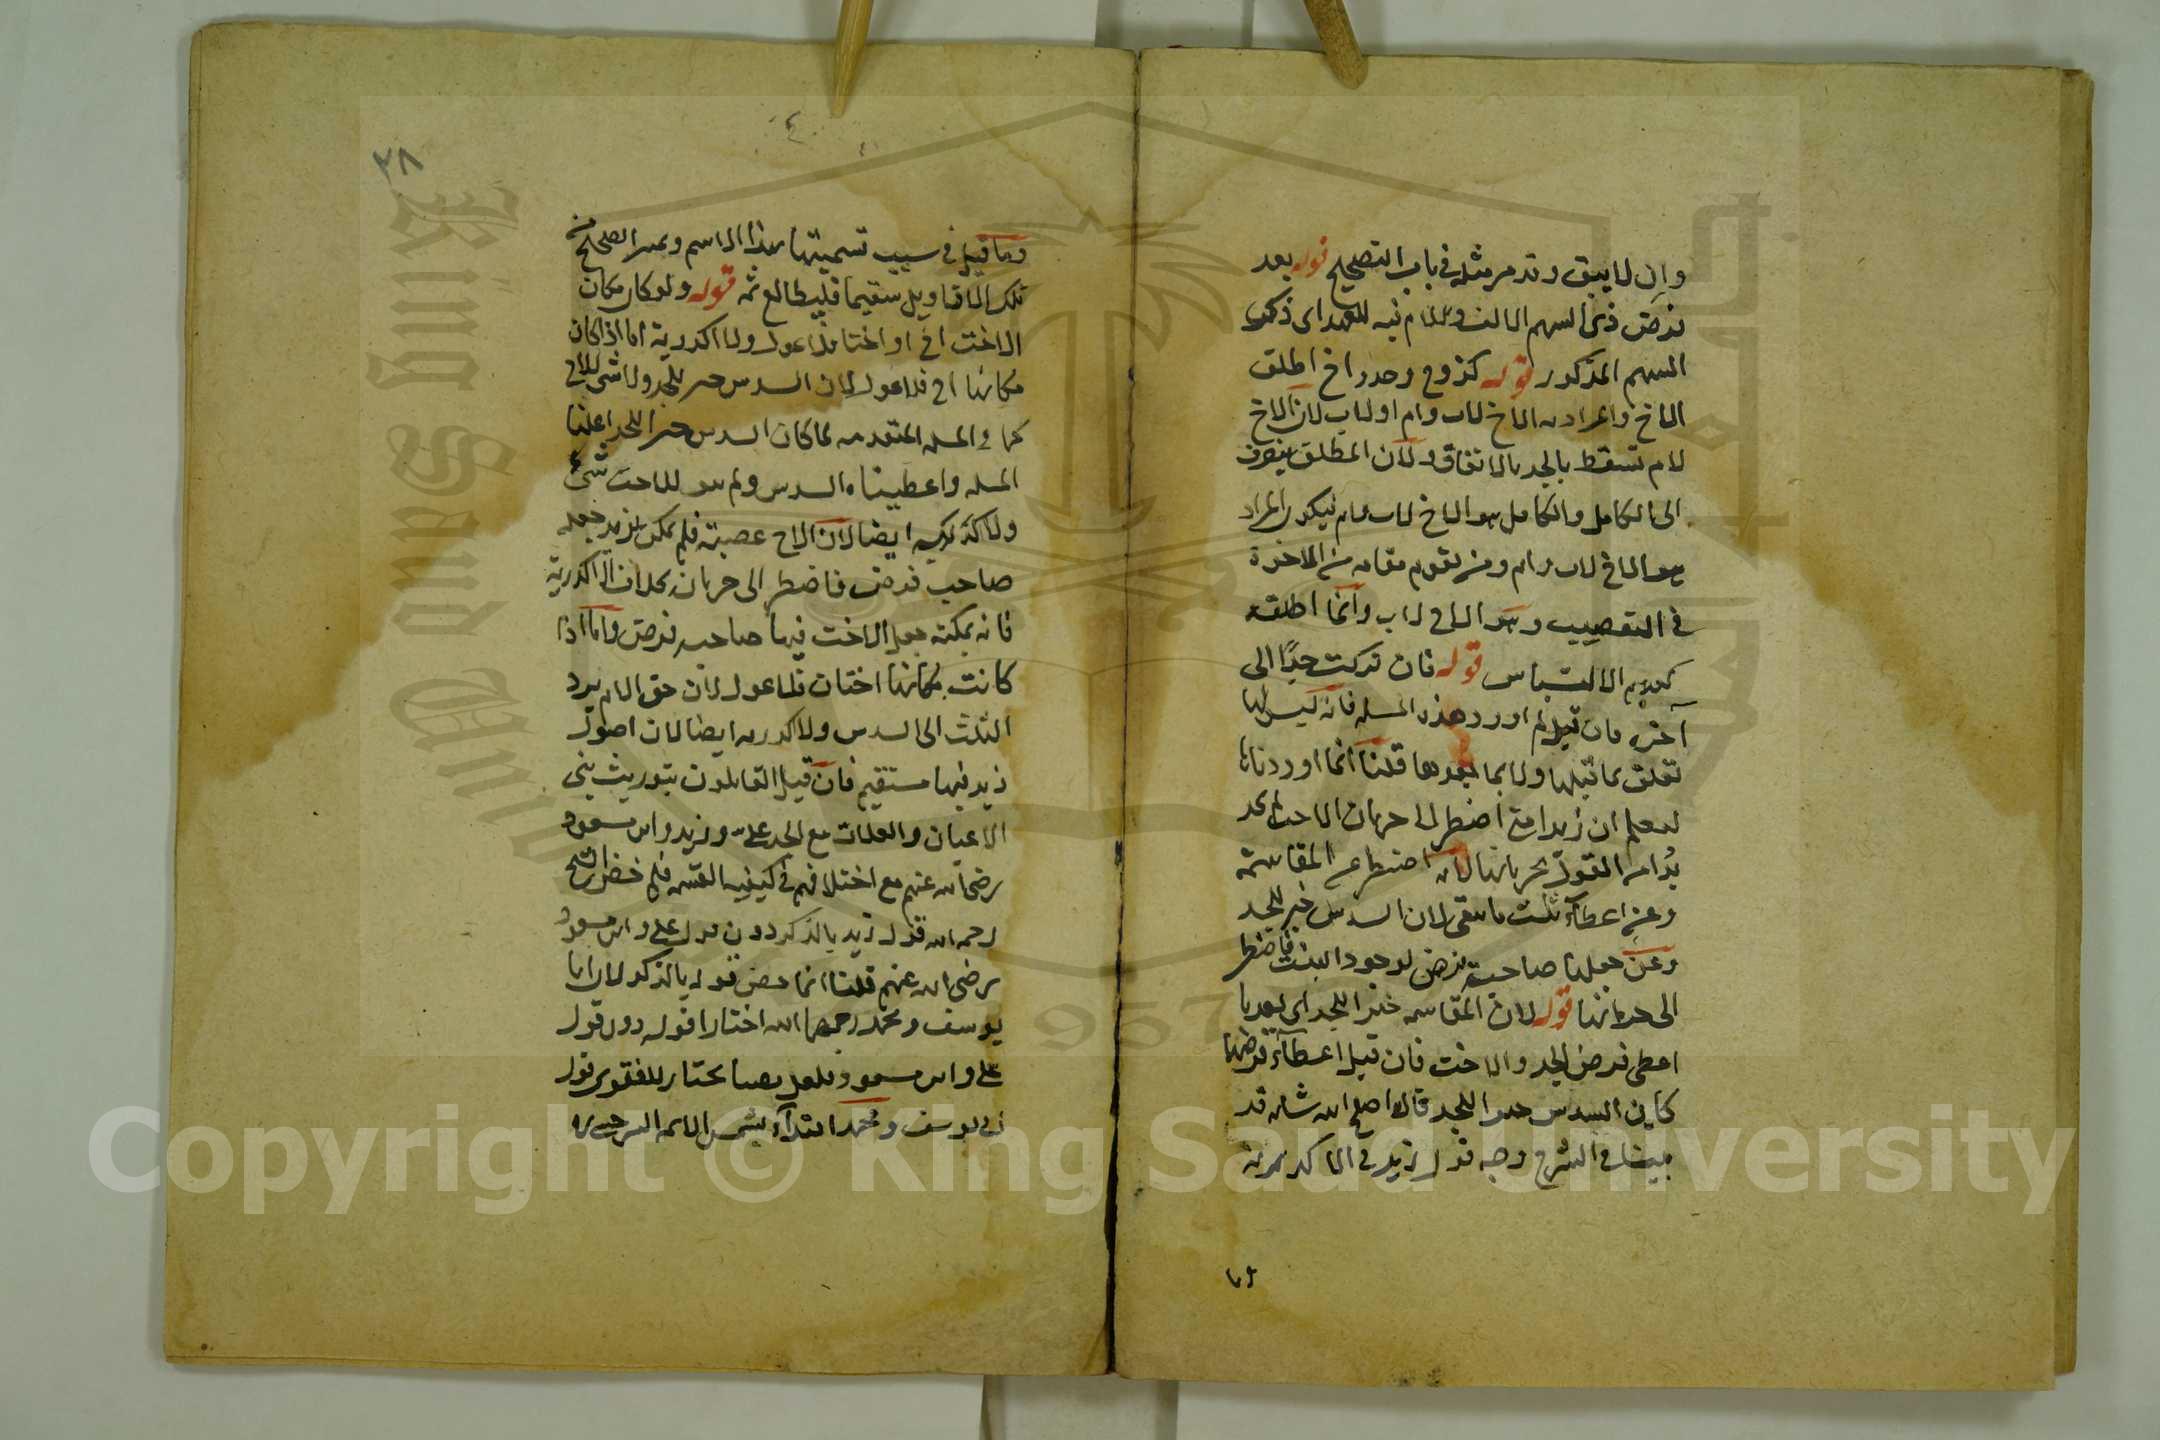 وان لا يبق وقد مر مثله في باب التصحيح قوله بعد
فرض ذى السهم الالف واللام فيه للعهد اى ذى
السهم المذكور قوله كزوج وجد واخ اطلق
الاخ والمراد به الاخ لاب وام او لاب لان الاخ
لام تسقط بالجد بالاتفاق ولان المطلق ينصرف
الى الكامل والكامل هو الاخ لاب وام فيكون المراد
هو الاخ لاب وام ومن يقوم مقامه من الاخوة
في التعصيب وهو الاخ لاب وانما اطلقه
لعدم الالتباس قوله فان تركت جدا الى
آخره فان قيل لم اورد هذه المسله فانه ليس لها
تعلق بما قبلها ولا بما بعدها قلنا انما اوردناها
ليعلم ان زيدا متى اضطر الى حرمان الاخت لم يجد
بدا من القول بحرمانها لانه اضطر عن المقاسمة
وعن اعطاء ثلث ما يبقى لان السدس خير للجد
وعن جعلها صاحبة فرض لوجود البنت فاضطر
الى حرمانها قوله لان المقاسمه خير للجد اى بعد ما
اعطى فرض الجد والاخت فان قيل اعطاء فرضها
كاين السدس خير للجد قال اصلح الله شانه قد
بينا في الشرح وجه قول زيد في الاكدرية
وما قيل في سبب تسميتها بهذا الاسم وميز الصحيح من
تلك الاقاويل سقيما فليطالع ثمه قوله ولو كان مكان
الاخت اخ او اختان فلا عول ولا اكدرية اما اذا كان
مكانها اخ فلا عول لان السدس خير للجد ولا شى للاخ
كما في المسله المتقدمه لما كان السدس خيرا للجد اعلنا
المسله واعطيناه السدس ولم يبق للاخت شئ
ولا اكدرية ايضا لان الاخ عصبة فلم يمكن لزيد جعله
صاحب فرض فاضطر الى حرمانه بخلاف الاكدرية
فانه يمكنه جعل الاخت فيها صاحبه فرض واما اذا
كانت مكانها اختان فلا عول لان حق الام يرد
الثلث الى السدس ولا اكدريه ايضا لان اصول
زيد فيها مستقيم فان قيل القايلون بتوريث بني
الاعيان والعلات مع الجد على وزيد وابن مسعود
رضى الله عنهم مع اختلافهم في كيفيه القسمه فلم خص الشيخ
رحمه الله قول زيد بالذكر دون قول على وابن مسعود
رضى الله عنهم قلنا انما خص قوله بالذكر لان ابا
يوسف ومحمد رحمهما الله اختارا قوله دون قول
على وابن مسعود ولعل يصنا يختار للفتوى قول
ابى يوسف ومحمد اقتداء بشمس الايمه السرخسى
٣٨